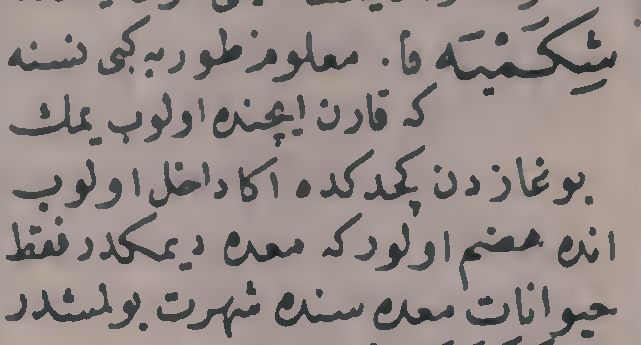 شِكَمْبَه فا. معلوم طوربه كبى نسنه
كه قارن ايچنده اولوب يمك
بوغازدن كچدكده اكا داخل اولوب
انده هضم اولور كه معده ديمكدر فقط
حيوانات معده سنده شهرت بولمشدر